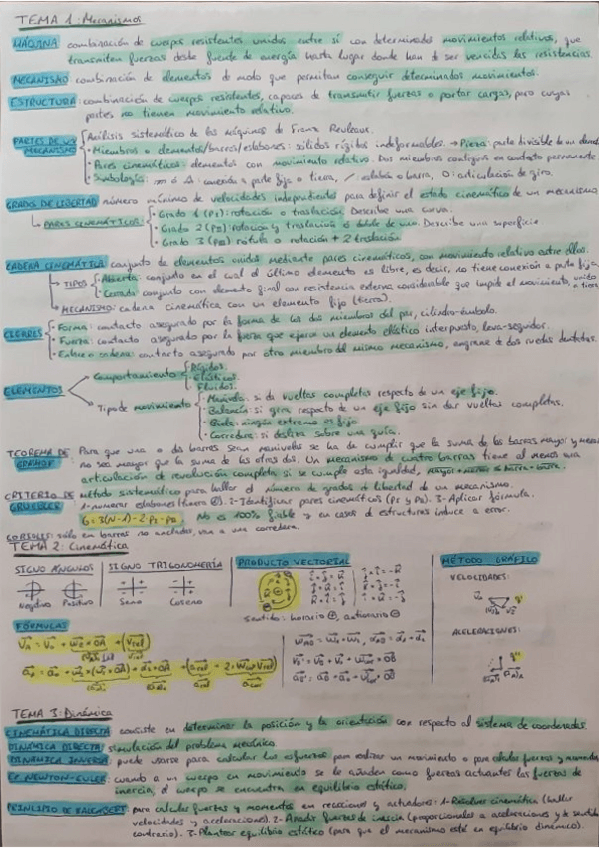 TEMA 1: Mecanismos
MÁQUINA combinación de cuerpos resistentes unidos entre sí con determinados movimientos relativos, que
transmiten fuerzas desde fuente de energía hasta lugar donde han de ser vencidas las resistencias.
MECANISMO combinación de elementos de modo que permitan conseguir determinados movimientos.
ESTRUCTURA: combinación de cuerpos resistentes, capaces de transmitir fuerzas o portar cargas, pero cuyas
partes no tienen movimiento relativo.
PARTES DE UN MECANISMO
Análisis sistemático de las máquinas de Franz Reuleaux.
Miembros o elementos/barras/eslabones: sólidos rígidos indeformables. → Pieza: parte divisible de un
Pares cinemáticos: elementos con movimiento relativo. Dos miembros contiguos en contacto permanente
Simbología: o Δ: conexión a parte fija o tierra, / eslabón o barra, O: articulación de giro.
GRADO DE LIBERTAD número mínimo de velocidades independientes para definir el estado cinemático de un mecanismo
PARES CINEMÁTICOS:
Grado 1 (P1): rotación o traslación. Describe una curva.
Grado 2 (P2) rotación y traslación o doble de uno. Describe una superficie
Grado 3 (P3) rótula o rotación + 2 traslación
CADENA CINEMÁTICA conjunto de elementos unidos mediante pares cinemáticos, con movimiento relativo entre ellos.
TIPOS
Abierta: conjunto en el cual el último elemento es libre, es decir, no tiene conexión a parte fija
Cerrada: conjunto con elemento final con resistencia externa considerable que impide el movimiento, unido a tierra
MECANISMO: cadena cinemática con un elemento fijo (tierra).
CIERRES
Forma: contacto asegurado por la forma de los dos miembros del par, cilindro-émbolo.
Fuerza: contacto asegurado por la fuerza que ejerce un elemento elástico interpuesto, leva-seguidor.
Enlace o cadena: contacto asegurado por otro miembro del mismo mecanismo, engrane de dos ruedas dentadas.
ELEMENTOS
Comportamiento
Rígidos.
Elásticos.
Fluidos.
Tipo de movimiento
Manivela: si da vueltas completas respecto de un eje fijo.
Balancín: si gira respecto de un eje fijo sin dar vueltas completas.
Biela: ningún extremo es fijo
Corredera: si desliza sobre una guía.
TEOREMA DE GRASHOF
Para que una o dos barras sean manivelas se ha de cumplir que la suma de las barras mayor y menor
no sea mayor que la suma de las otras dos. Un mecanismo de cuatro barras tiene al menos una
articulación de revolución completa si se cumple esta igualdad, mayor + menor ≤ barra + barra.
CRITERIO DE GRUEBLER
método sistemático para hallar el número de grados de libertad de un mecanismo.
1-numerar eslabones (tierra). 2-Identificar pares cinemáticos (P1 y P2). 3- Aplicar fórmula.
G = 3(N-1)-2·P1-P2 No es 100% fiable y en casos de estructuras induce a error.
CORIOLIS: sólo en barras no ancladas, van a una corredera.
TEMA 2: Cinemática
SIGNO ÁNGULOS
SIGNO TRIGONOMETRÍA
PRODUCTO VECTORIAL
MÉTODO GRÁFICO
Negativo Positivo
Seno Coseno
Sentido: horario ⊕, antihorario ⊖
VELOCIDADES:
ACELERACIONES:
FÓRMULAS
TEMA 3: Dinámica
CINEMÁTICA DIRECTA consiste en determinar la posición y la orientación con respecto al sistema de coordenadas.
DINÁMICA DIRECTA: simulación del problema mecánico.
DINÁMICA INVERSA: puede usarse para calcular los esfuerzos para realizar un movimiento o para calcular fuerzas y momentos
EC. NEWTON-EULER: cuando a un cuerpo en movimiento se le añaden como fuerzas actuantes las fuerzas de
inercia, el cuerpo se encuentra en equilibrio estático.
PRINCIPIO DE D'ALEMBERT: para calcular fuerzas y momentos en reacciones y actuadores: 1-Resolver cinemática (hallar
velocidades y aceleraciones). 2-Añadir fuerzas de inercia (proporcionales a aceleraciones y de sentido
contrario). 3-Plantear equilibrio estático (para que el mecanismo esté en equilibrio dinámico).